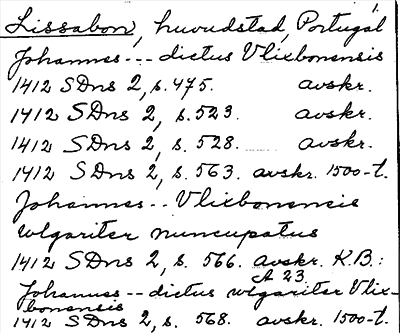 Lissabon, huvudstad, Portugal
Johannes --- dictus Vlixbonensis
1412 SDns 2, s. 475. avskr.
1412 SDns 2, s. 523. avskr.
1412 SDns 2, s. 528. avskr.
1412 SDns 2, s. 563. avskr. 1500-t.
Johannes -- Vlixbonensis
wlgariter nuncupatus
1412 SDns 2, s. 566. avskr. K.B.:
A 23
Johannes -- dictus wlgariter Vlix-
bonensis
1412 SDns 2, s. 568. avskr. 1500-t.